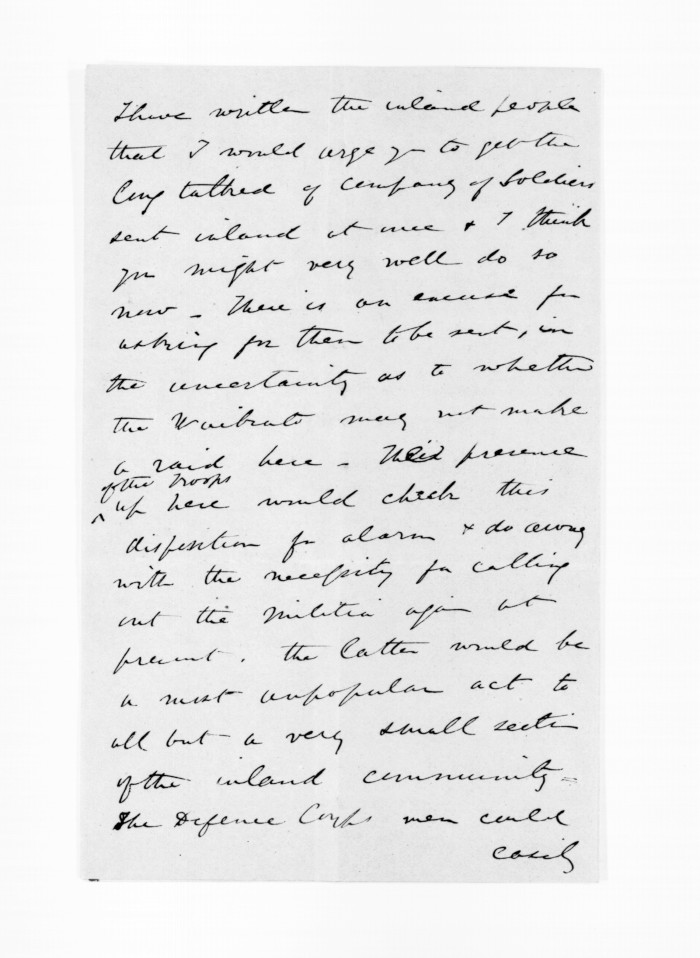 I have written the inland people
that I would urge yu to get the
long talked of company of Soldiers
sent inland at once & I think
yu might very well do so
now - There is an excuse for
asking for them to be sent, in
the uncertainty as to whether
the Waikato may not make
a raid here - The presence
of the Troops
up here would check this
disposition for alarm & do away
with the necessity for calling
out the militia again at
present. The latter would be
a most unpopular act to
all but a very small section
of the inland community =
The Defence Corps men could
easily